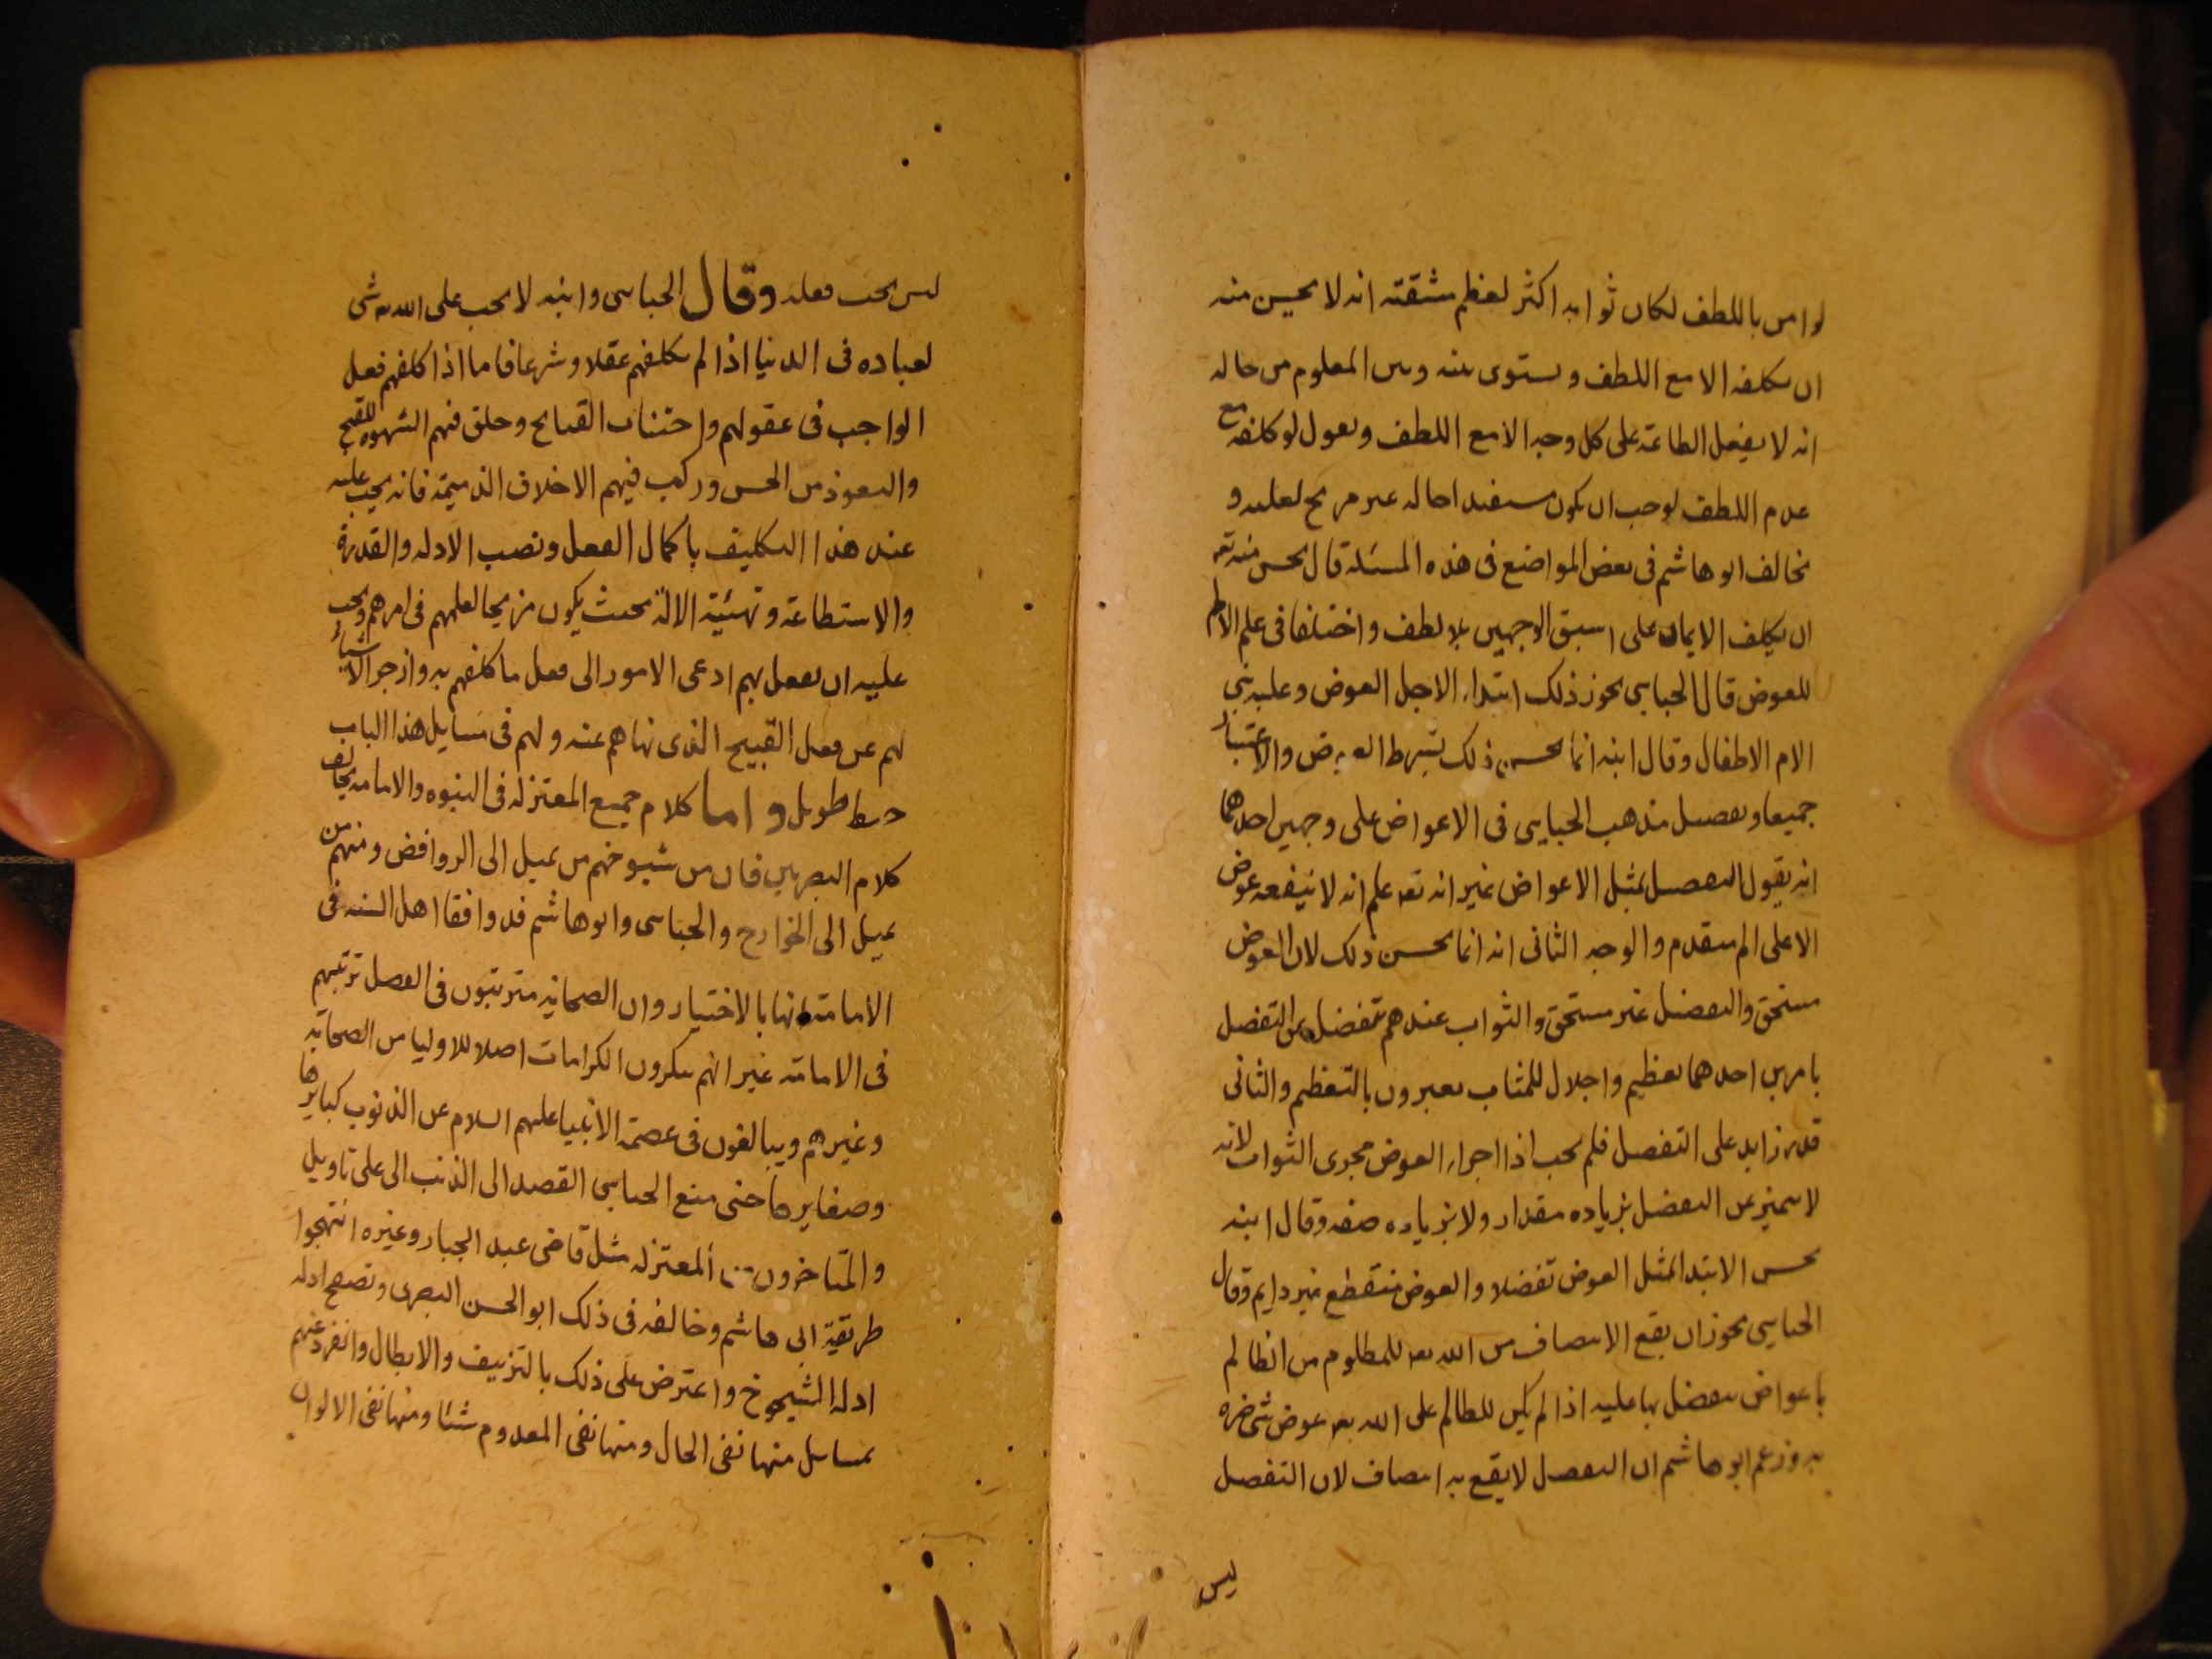 لو امن باللطف لكان ثوابه اكثر لعظم مشقته انه لا يحسن منه
ان يكلفه الا مع اللطف ويستوى بينه وبين المعلوم من حاله
انه لا يفعل الطاعة على كل وجه الا مع اللطف ويقول لو كلفه مع
عدم اللطف لوجب ان يكون مستفسدا حاله غير مريح لعلته و
يخالف ابو هاشم فى بعض المواضع فى هذه المسئلة قال يحسن منه تعه
ان يكلف الايمان على اسبق الوجهين بلا لطف واختلفا فى علم الالم
للعوض قال الجباىى يجوز ذلك ابتداء لاجل العوض وعليه بنى
الام الاطفال وقال ابنه انما يحسن ذلك بشرط العوض والاعتبار
جميعا وتفصيل مذهب الجباىى فى الاعواض على وجهين احدهما
انه يقول التفضل بمثل الاعواض غير انه تعه علم انه لا ينفعه عوض
الا على الم متقدم والوجه الثانى انه انما يحسن ذلك لان العوض
مستحق والتفضل غير مستحق والثواب عندهم يتفضل عن التفضل
بامرين احدهما تعظيم واجلال للمثاب يعبرون بالتعظيم والثانى
قدر زايد على التفضل فلم يجب اذا اجراء العوض مجرى الثواب لانه
لا يتميز عن التفضل بزياده مقدار ولا بزياده صفه وقال ابنه
يحسن الابتدا بمثل العوض تفضلا والعوض منقطع غير دايم وقال
الجباىى يجوز ان يقع الانتصاف من الله تعه للمظلوم من الظالم
باعواض يتفضل بها عليه اذا لم يكن للظالم على الله تعه عوض شى ضره
به وزعم ابو هاشم ان التفضل لا يقع به انتصاف لان التفضل
ليس
ليس يجب فعله وقال الجباىى وابنه لا يجب على الله تعه شى
لعباده فى الدنيا اذا لم يكلفهم عقلا وشرعا فاما اذا كلفهم فعل
الواجب فى عقولهم واجتناب القبايح وخلق فيهم الشهوه للقبيح
والنفور من الحسن وركب فيهم الاخلاق الذميمة فانه يجب عليه
عند هذا التكليف باكمال العقل ونصب الادله والقدرة
والاستطاعة وتهيئة الالة بحيث يكون مزيحا لعللهم فى امرهم ويجب
عليه ان يفعل بهم ادعى الامور الى فعل ما كلفهم به وازجر الاشياء
لهم عن فعل القبيح الذى نهاهم عنه ولهم فى مسايل هذا الباب
خبط طويل واما كلام جميع المعتزله فى النبوه والامامه يخالف
كلام البصريين فان من شيوخهم من يميل الى الروافض ومنهم من
يميل الى الخوارج والجباىى وابو هاشم قد وافقا اهل السنه فى
الامامة انها بالاختيار وان الصحابه مترتبون فى الفضل ترتبهم
فى الامامه غير انهم ينكرون الكرامات اصلا للاوليا من الصحابه
وغيرهم ويبالغون فى عصمة الانبيا عليهم السلام عن الذنوب كبايرها
وصغايرها حتى منع الجباىى القصد الى الذنب الى على تاويل
والمتاخرون من المعتزله مثل قاضى عبد الجبار وغيره انتهجوا
طريقة ابى هاشم وخالفه فى ذلك ابو الحسن البصرى وتصفح ادله
ادله الشيوخ واعترض على ذلك بالتزييف والابطال وانفرد عنهم
بمسايل منها نفى الحال ومنها نفى المعدوم شئا ومنها نفى الالوان